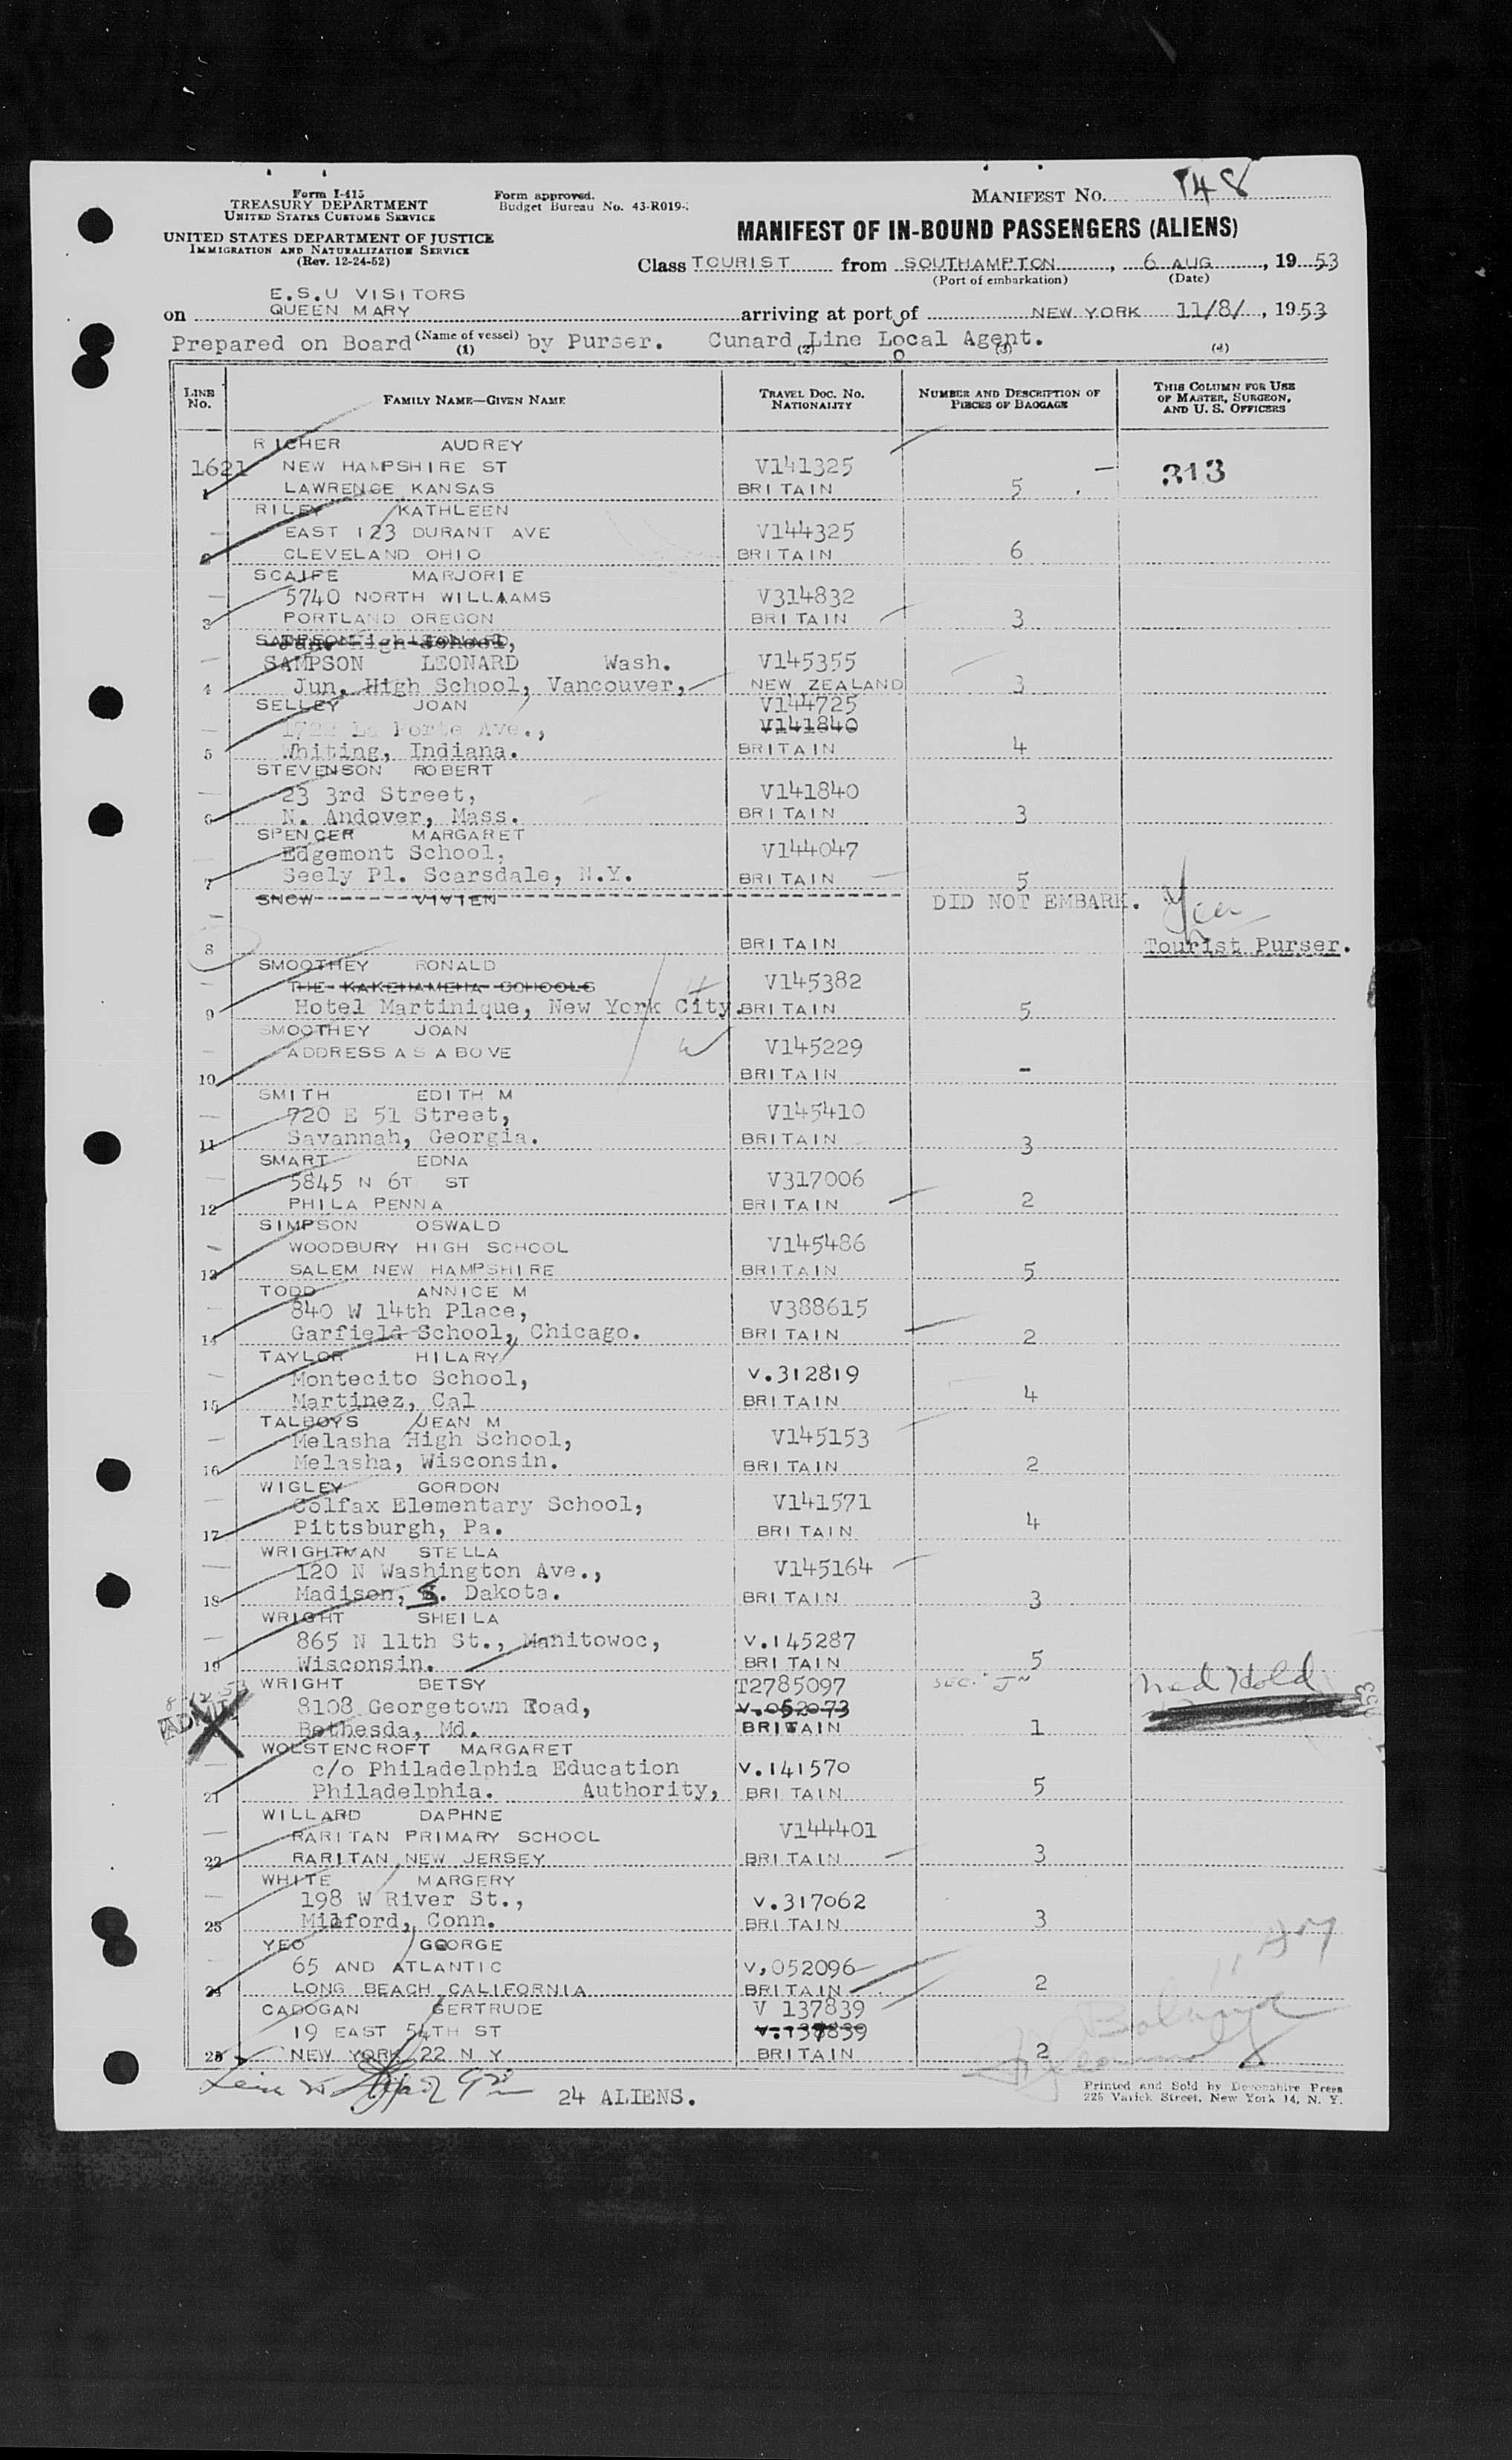 Form I-415
TREASURY DEPARTMENT
UNITED STATES CUSTOMS SERVICE
UNITED STATES DEPARTMENT OF JUSTICE
IMMIGRATION AND NATURALIZATION SERVICE
(Rev. 12-24-52)
Form approved.
Budget Bureau No. 43-R019-
MANIFEST No. 148
MANIFEST OF IN-BOUND PASSENGERS (ALIENS)
Class TOURIST from SOUTHAMPTON, 6 AUG, 1953
(Port of embarkation) (Date)
E.S.U VISITORS
on QUEEN MARY arriving at port of NEW YORK 11/8/, 1953
(Name of vessel)
Prepared on Board by Purser. Cunard Line Local Agent.
(1) (2) (3) (4)
LINE No. FAMILY NAME—GIVEN NAME TRAVEL DOC. NO. NATIONALITY NUMBER AND DESCRIPTION OF PIECES OF BAGGAGE THIS COLUMN FOR USE OF MASTER, SURGEON, AND U. S. OFFICERS
RICHER AUDREY
1621 NEW HAMPSHIRE ST V141325 — 313
1 LAWRENCE KANSAS BRITAIN 5
RILEY KATHLEEN
EAST 123 DURANT AVE V144325
2 CLEVELAND OHIO BRITAIN 6
SCAIFE MARJORIE
5740 NORTH WILLAAMS V314832
3 PORTLAND OREGON BRITAIN 3
SAMPSON LEONARD Wash. V145355
4 Jun. High School, Vancouver, NEW ZEALAND 3
SELLEY JOAN V144725
1722 La Porte Ave., V141840
5 Whiting, Indiana. BRITAIN 4
STEVENSON ROBERT
23 3rd Street, V141840
6 N. Andover, Mass. BRITAIN 3
SPENCER MARGARET
Edgemont School, V144047
7 Seely Pl. Scarsdale, N.Y. BRITAIN 5
SNOW VIVIEN DID NOT EMBARK.
8 BRITAIN Tourist Purser.
SMOOTHEY RONALD
THE KAKEHAMEHA SCHOOLS V145382
9 Hotel Martinique, New York City. BRITAIN 5
SMOOTHEY JOAN
ADDRESS AS ABOVE V145229
10 BRITAIN -
SMITH EDITH M
720 E 51 Street, V145410
11 Savannah, Georgia. BRITAIN 3
SMART EDNA
5845 N 6T ST V317006
12 PHILA PENNA BRITAIN 2
SIMPSON OSWALD
WOODBURY HIGH SCHOOL V145486
13 SALEM NEW HAMPSHIRE BRITAIN 5
TODD ANNICE M
840 W 14th Place, V388615
14 Garfield School, Chicago. BRITAIN 2
TAYLOR HILARY
Montecito School, V.312819
15 Martinez, Cal BRITAIN 4
TALBOYS JEAN M
Melasha High School, V145153
16 Melasha, Wisconsin. BRITAIN 2
WIGLEY GORDON
Colfax Elementary School, V141571
17 Pittsburgh, Pa. BRITAIN 4
WRIGHTMAN STELLA
120 N Washington Ave., V145164
18 Madison, S. Dakota. BRITAIN 3
WRIGHT SHEILA
865 N 11th St., Manitowoc, V.145287
19 Wisconsin. BRITAIN 5
WRIGHT BETSY T2785097 SEC. Med Hold
8108 Georgetown Road, V.052073
ADMIT Bethesda, Md. BRITAIN 1
WOLSTENCROFT MARGARET
c/o Philadelphia Education V.141570
21 Philadelphia. Authority, BRITAIN 5
WILLARD DAPHNE
RARITAN PRIMARY SCHOOL V144401
22 RARITAN NEW JERSEY BRITAIN 3
WHITE MARGERY
198 W River St., V.317062
23 Milford, Conn. BRITAIN 3
YEO GEORGE
65 AND ATLANTIC V,052096
24 LONG BEACH CALIFORNIA BRITAIN 2
CADOGAN GERTRUDE V 137839
19 EAST 54TH ST V.137839
25 NEW YORK 22 N Y BRITAIN 2
24 ALIENS.
Printed and Sold by Devonshire Press
225 Varick Street, New York 14, N. Y.